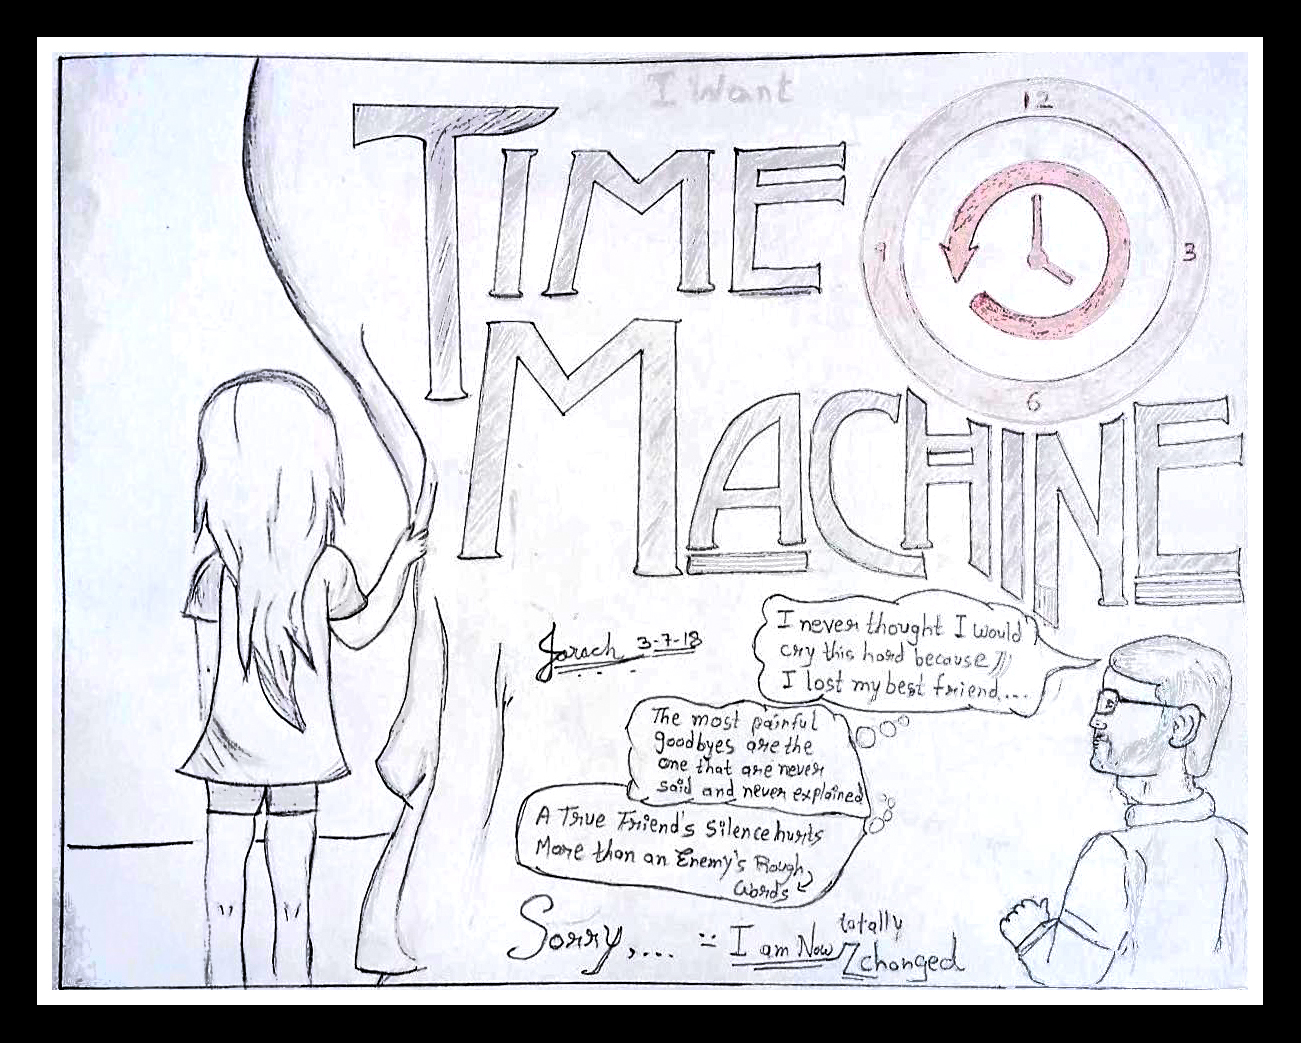 I Want
TIME
MACHINE
12
3
6
9
3-7-18
I never thought I would
cry this hard because
I lost my best friend....
The most painful
goodbyes are the
one that are never
said and never explained
A True Friend's Silence hurts
More than an Enemy's Rough
Words
Sorry,.... :- I am Now totally changed